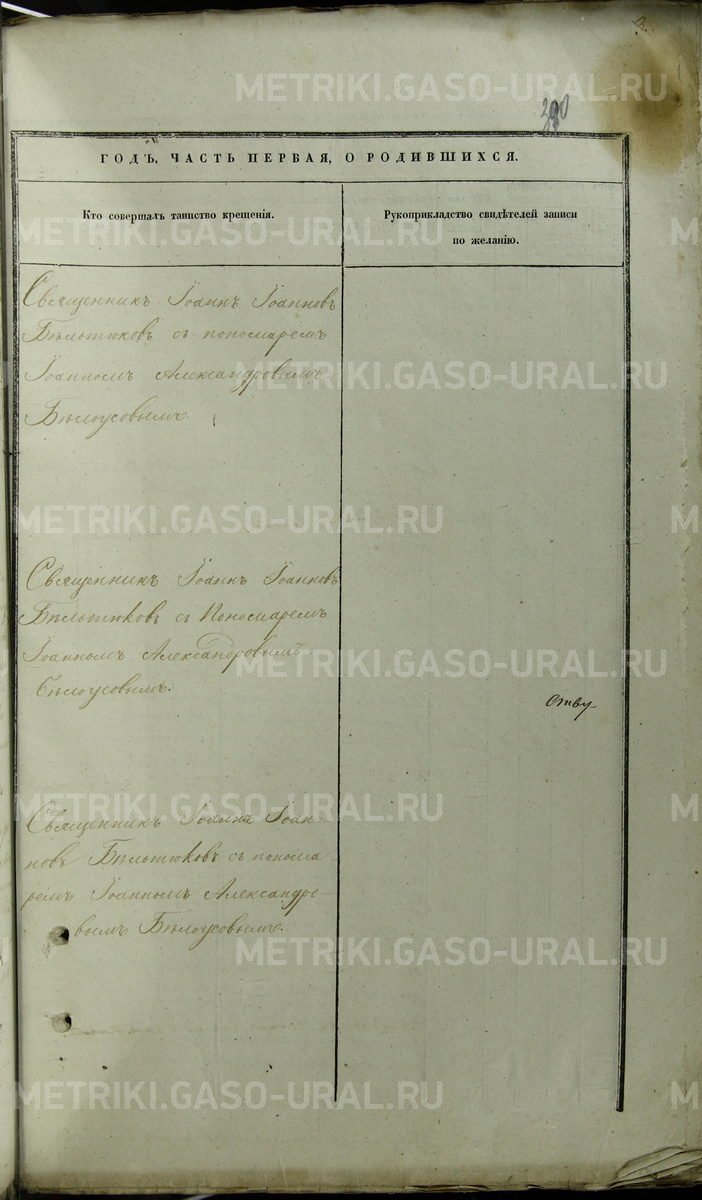 ГОДЪ, ЧАСТЬ ПЕРВАЯ, О РОДИВШИХСЯ.
Кто совершалъ таинство крещенія.
Рукоприкладство свидѣтелей записи
по желанію.
Священникъ Іоаннъ Іоанновъ
Бѣльтюковъ съ пономаремъ
Іоанномъ Александровымъ
Бѣлоусовымъ.
Священникъ Іоаннъ Іоанновъ
Бѣльтюковъ съ Пономаремъ
Іоанномъ Александровымъ
Бѣлоусовымъ.
Священникъ Іоаннъ Іоан-
новъ Бѣльтюковъ съ понома-
ремъ Іоанномъ Александро-
вымъ Бѣлоусовымъ.
ству
METRIKI.GASO-URAL.RU
METRIKI.GASO-URAL.RU
METRIKI.GASO-URAL.RU
METRIKI.GASO-URAL.RU
METRIKI.GASO-URAL.RU
METRIKI.GASO-URAL.RU
METRIKI.GASO-URAL.RU
METRIKI.GASO-URAL.RU